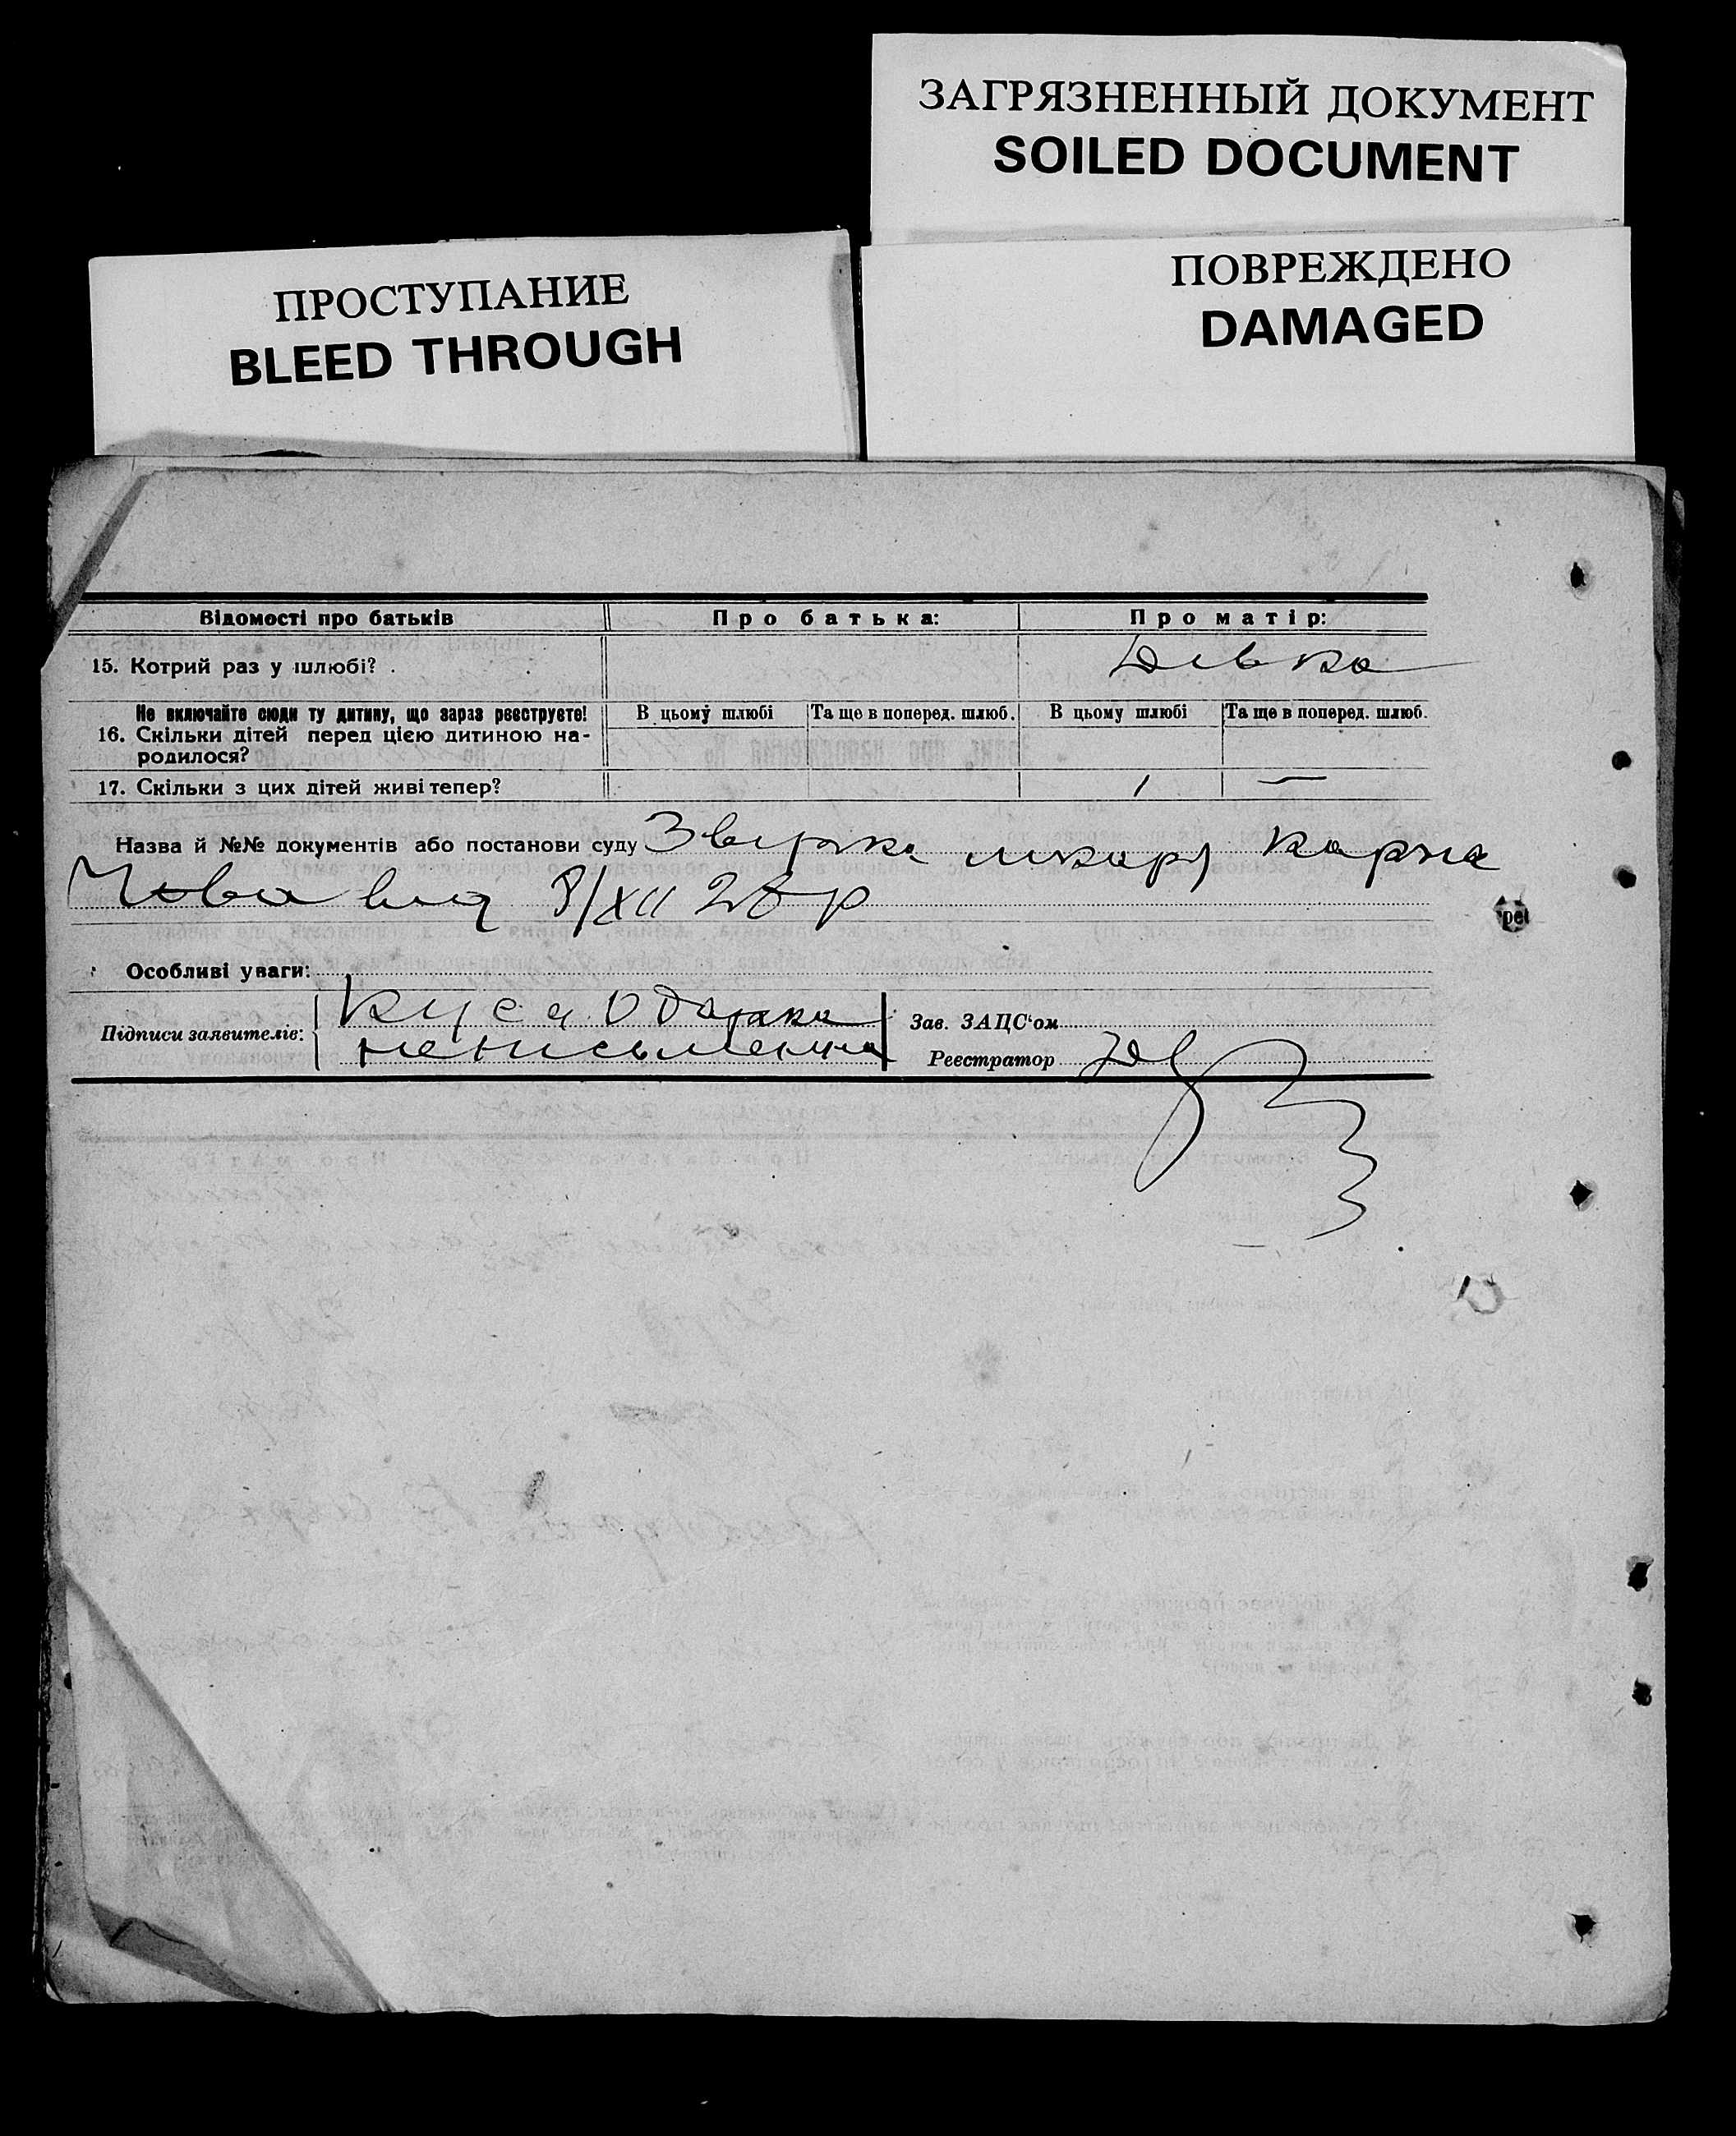 ЗАГРЯЗНЕННЫЙ ДОКУМЕНТ
SOILED DOCUMENT
ПОВРЕЖДЕНО
DAMAGED
ПРОСТУПАНИЕ
BLEED THROUGH
Відомості про батьків Про батька: Про матір:
15. Котрий раз у шлюбі? Дівка
Не включайте сюди ту дитину, що зараз реєструєте! В цьому шлюбі Та ще в поперед. шлюб. В цьому шлюбі Та ще в поперед. шлюб.
16. Скільки дітей перед цією дитиною на-
родилося?
17. Скільки з цих дітей живі тепер? 1 —
Назва й №№ документів або постанови суду
від 8/XII 28 р
Особливі уваги:
Підписи заявителів: Куса Одарка
неписьменна
Зав. ЗАЦС'ом
Реєстратор